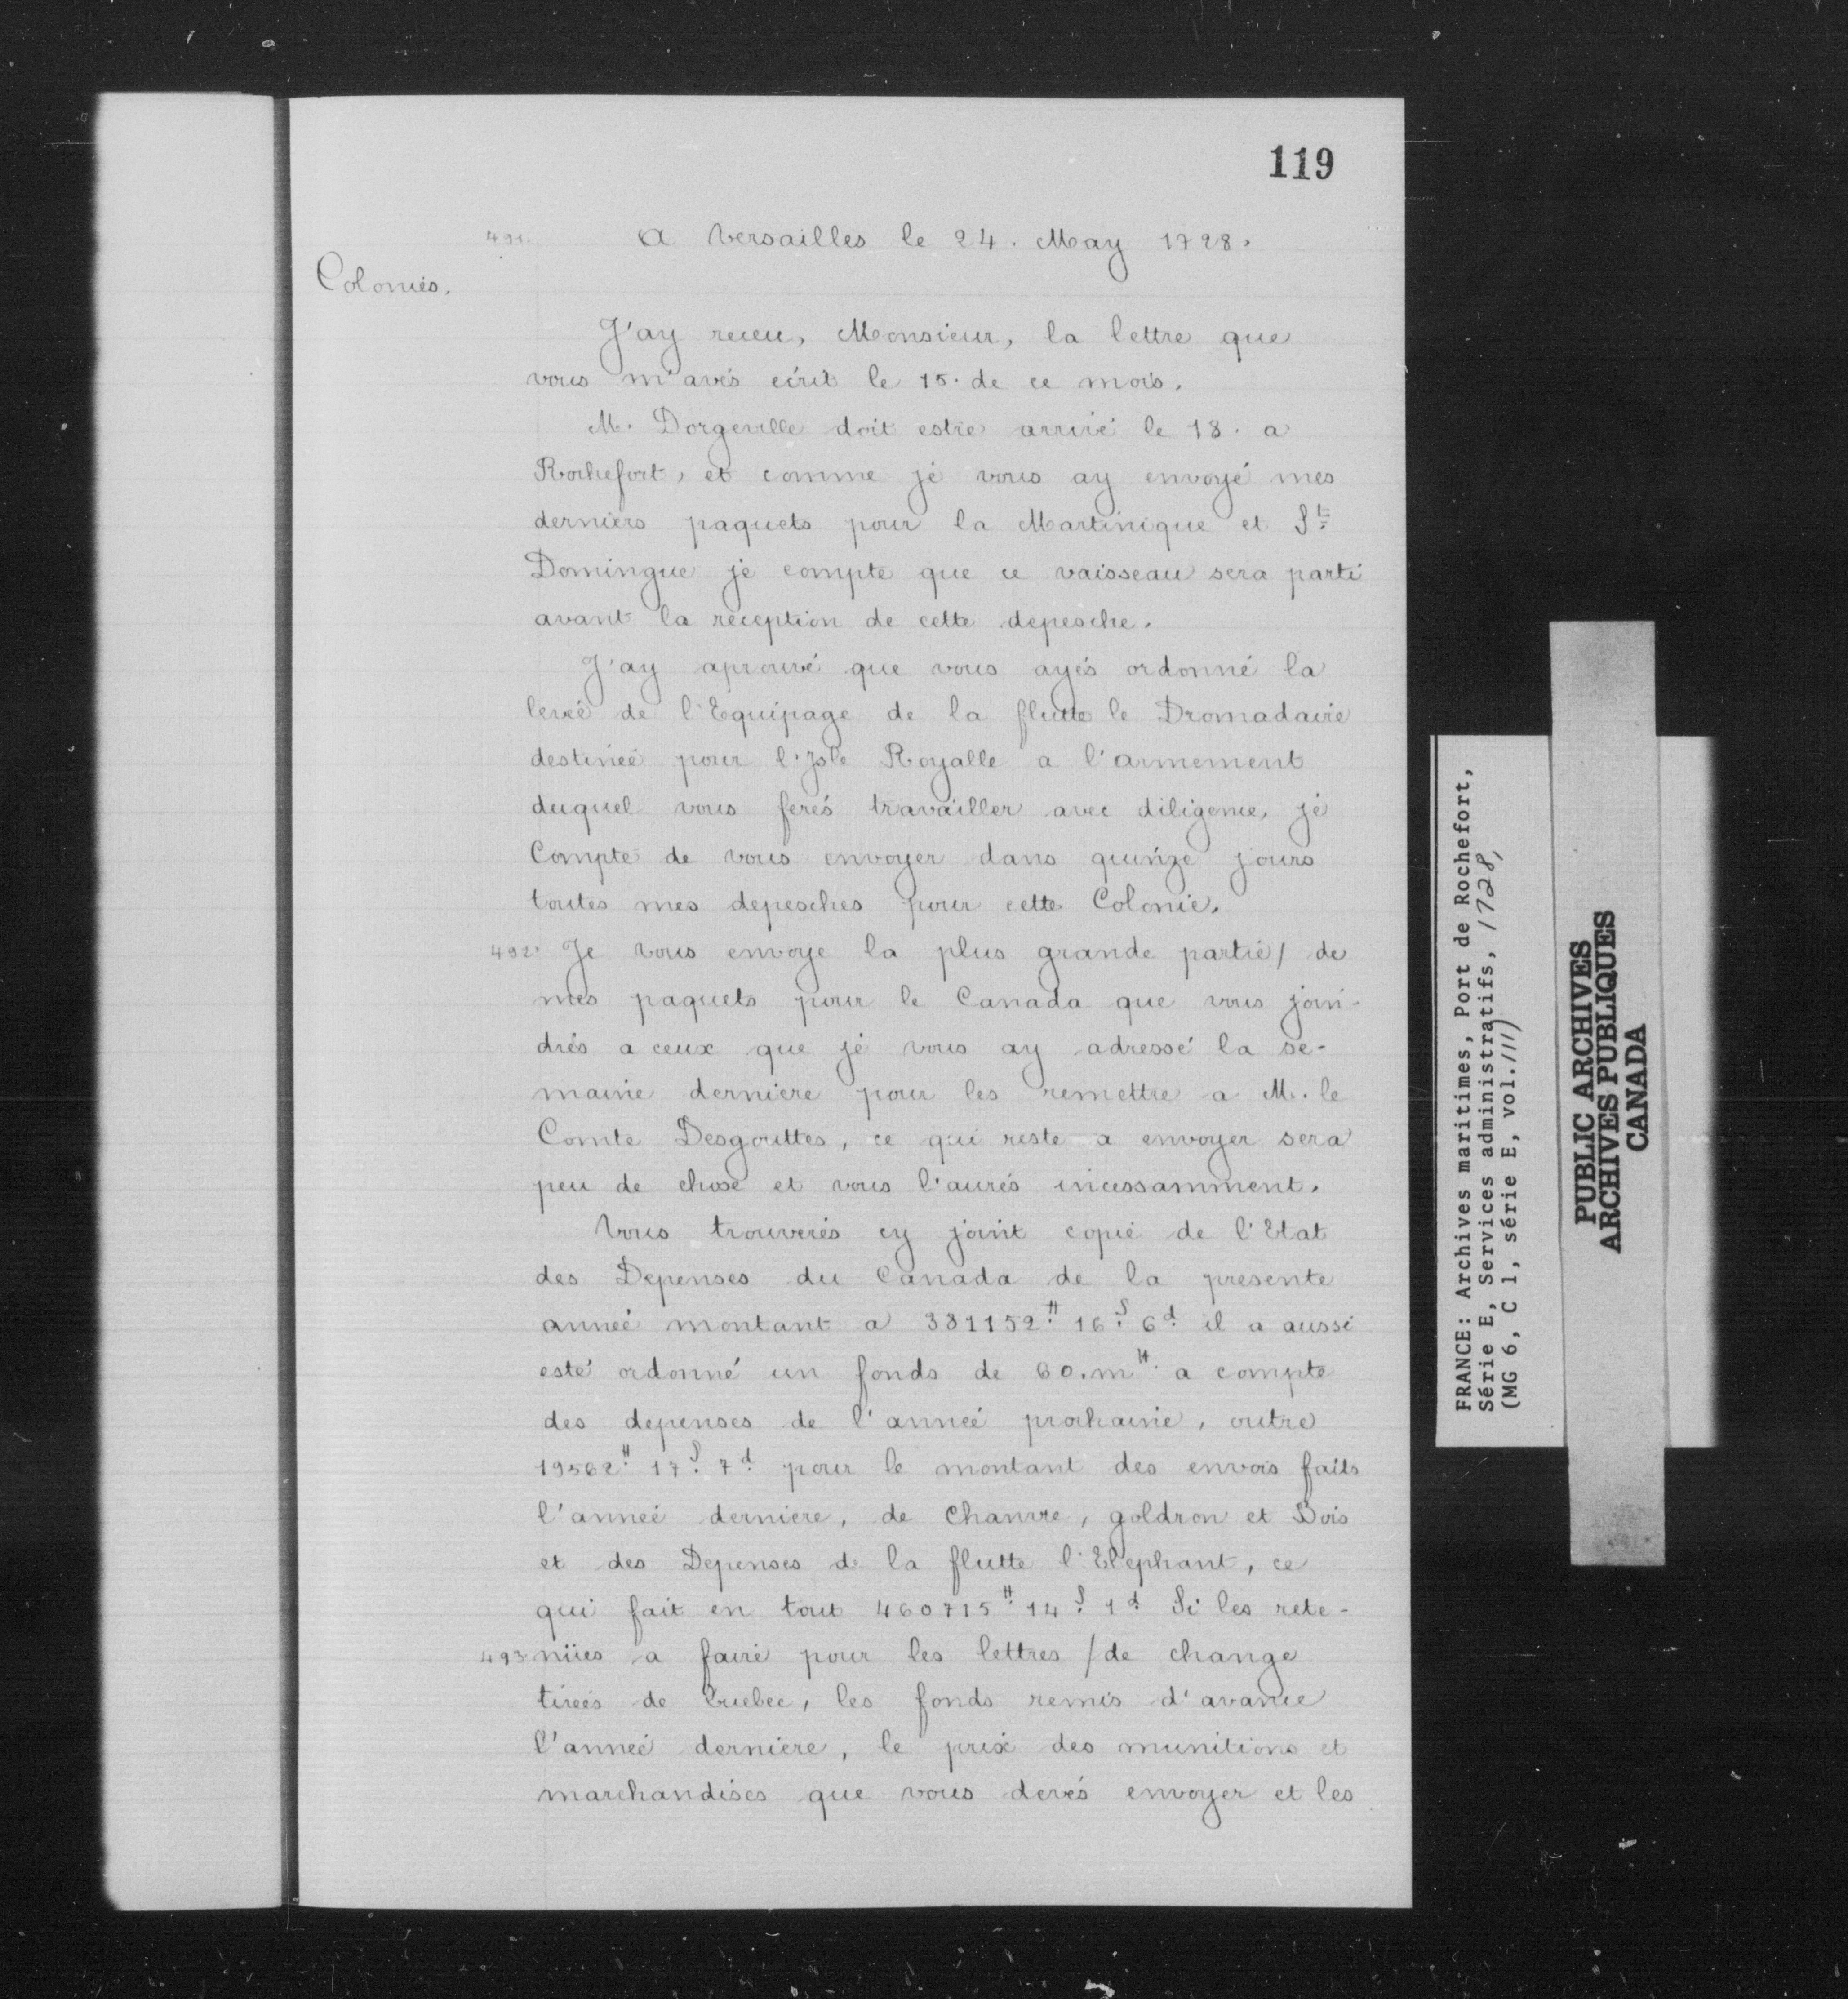 119
491. A Versailles le 24. May 1728.
Colonies.
J'ay receu, Monsieur, la lettre que
vous m'avés ecrit le 15. de ce mois.
M. Dorgeville doit estre arrivé le 18. a
Rochefort, et comme je vous ay envoyé mes
derniers paquets pour la Martinique et St
Domingue je compte que ce vaisseau sera parti
avant la reception de cette depesche.
J'ay aprouvé que vous ayés ordonné la
levée de l'Equipage de la flutte le Dromadaire
destinée pour l'Isle Royalle a l'armement
duquel vous ferés travailler avec diligence, je
Compte de vous envoyer dans quinze jours
toutes mes depesches pour cette Colonie.
492. Je vous envoye la plus grande partie / de
mes paquets pour le Canada que vous join-
drés a ceux que je vous ay adressé la se-
maine derniere pour les remettre a M. le
Comte Desgouttes, ce qui reste a envoyer sera
peu de chose et vous l'aurés incessamment.
Vous trouverés cy joint copie de l'Etat
des Depenses du Canada de la presente
année montant a 381152tt 16s 6d il a aussi
esté ordonné un fonds de 60.mtt a compte
des depenses de l'année prochaine, outre
19562tt 17s 7d pour le montant des envois faits
l'année derniere, de Chanvre, goldron et Bois
et des Depenses de la flutte l'Elephant, ce
qui fait en tout 460715tt 14s 1d Si les rete-
493. nües a faire pour les lettres / de change
tirées de Quebec, les fonds remis d'avance
l'année derniere, le prix des munitions et
marchandises que vous devés envoyer et les
FRANCE: Archives maritimes, Port de Rochefort,
Série E, Services administratifs, 1728,
(MG 6, C 1, série E, vol. 111)
PUBLIC ARCHIVES
ARCHIVES PUBLIQUES
CANADA